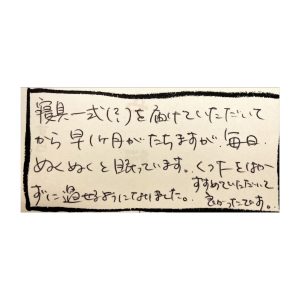 寝具一式(?)を届けていただいて
から早1ヶ月がたちますが、毎日
ぬくぬくと眠っています。くつ下をはか
ずに過せるようになりました。
すすめていただいて
良かったです。